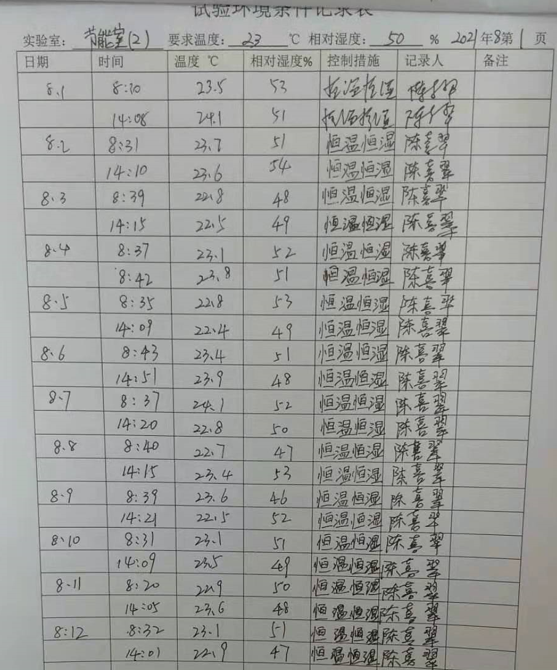 试验环境条件记录表
实验室：节能室(2) 要求温度：23 ℃ 相对湿度：50 % 2021年8第1页
日期 时间 温度 ℃ 相对湿度% 控制措施 记录人 备注
8.1 8:10 23.5 53 恒温恒湿 陈喜翠
14:08 24.1 51 恒温恒湿 陈喜翠
8.2 8:31 23.7 51 恒温恒湿 陈喜翠
14:10 23.6 54 恒温恒湿 陈喜翠
8.3 8:39 22.8 48 恒温恒湿 陈喜翠
14:15 22.5 49 恒温恒湿 陈喜翠
8.4 8:37 23.1 52 恒温恒湿 陈喜翠
8:42 23.8 51 恒温恒湿 陈喜翠
8.5 8:35 22.8 53 恒温恒湿 陈喜翠
14:09 22.4 49 恒温恒湿 陈喜翠
8.6 8:43 23.4 51 恒温恒湿 陈喜翠
14:51 23.9 48 恒温恒湿 陈喜翠
8.7 8:37 24.1 52 恒温恒湿 陈喜翠
14:20 22.8 50 恒温恒湿 陈喜翠
8.8 8:40 22.7 47 恒温恒湿 陈喜翠
14:15 23.4 53 恒温恒湿 陈喜翠
8.9 8:39 23.6 46 恒温恒湿 陈喜翠
14:21 22.5 52 恒温恒湿 陈喜翠
8.10 8:31 23.1 51 恒温恒湿 陈喜翠
14:09 23.5 49 恒温恒湿 陈喜翠
8.11 8:20 22.9 50 恒温恒湿 陈喜翠
14:05 23.6 48 恒温恒湿 陈喜翠
8:12 8:32 23.1 51 恒温恒湿 陈喜翠
14:01 22.9 47 恒温恒湿 陈喜翠